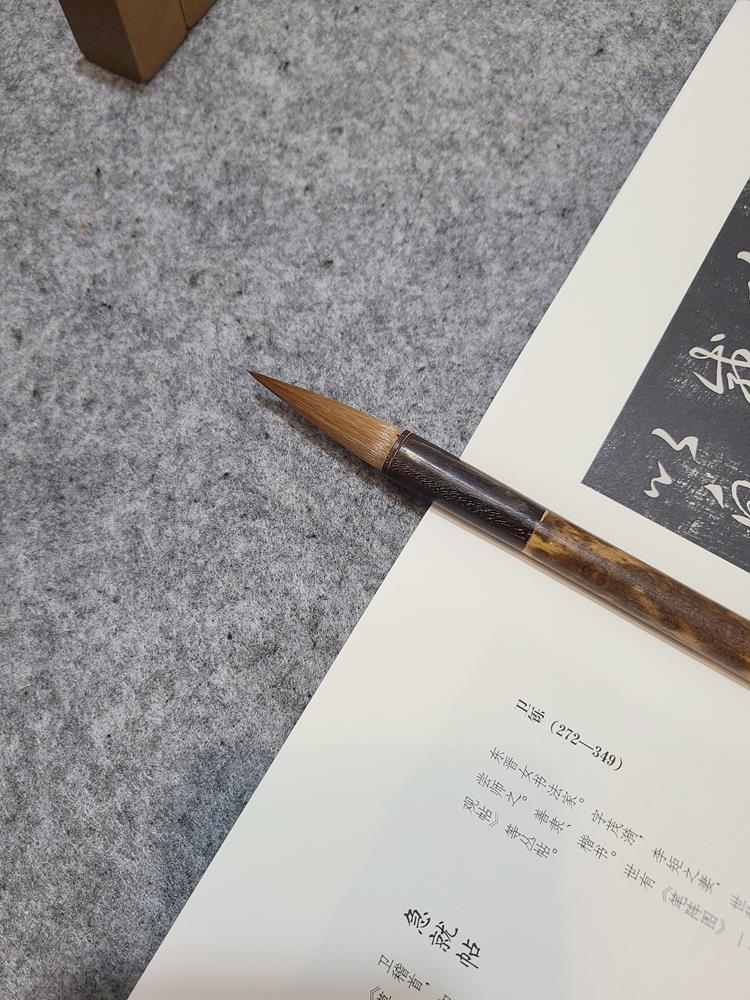 卫铄（272—349）
东晋女书法家。字茂漪，李矩之妻，世
尝师之。善隶、楷书。世有《笔阵图》一
观帖》等丛帖。
急就帖
卫稽首，